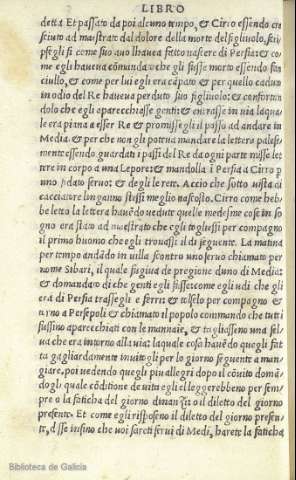 LIBRO
detta Et passato da poi alcuno tempo, & Cirro essendo cre
sciuto ad maestrato dal dolore della morte del figliuolo, scri
pse gli si come suo auo l'haueua fatto nascere di Persia: & co
me egli haueua cōmandato che gli fusse morto essendo fan
ciullo, & come per lui egli era cāpato & per quello caduto
in odio del Re haueua perduto suo figliuolo: & confortan
dolo che egli aparecchiasse gente: & entrasse in uia laqua
le era piana a esser Re & promisse gli il passo ad andare in
Media. & per che non gli potrua mandare la lettera palese
mente essendo guardati i passi del Re da ogni parte misse let
tere in corpo a una Lepore: & mandolla i Persia a Cirro p
uno fidato seruo: & degli le rete. Accio che sotto uista di
cacciatore lingannostessi meglio nascosto. Cirro come heb
be letto la lettera hauēdo uedute quelle medesme cose in so
gno era stato ad maestrato che egli togliessi per compagno
il primo huomo che egli trouasse il di seguente. La matina
per tempo andādo in uilla scontro uno seruo chiamato per
nome Sibari, il quale fugiua de pregione duno di Media:
& domandato di che genti egli fusse: come egli udi che gli
era di Persia trassegli e ferri: & tolselo per compagno &
torno a Persepoli & chiamato il popolo commando che tutti
fussino aparecchiati con le mannaie, & tagliasseno una sel
ua che era intorno alla uia: laquale cosa hauēdo quegli fat
ta gagliardamente inuito gli per lo giorno seguente a man
giare, poi uedendo quegli piu allegri dopo il cōuito domā
dogli quale cōditione de uita egli elleggerebbeno per sem
pre o la faticha del giorno dinanzi o il diletto del giorno
presente. Et come egli risposeno il diletto del giorno presen
te, disse insino che uoi sareti serui di Medi, harete la faticha
Biblioteca de Galicia